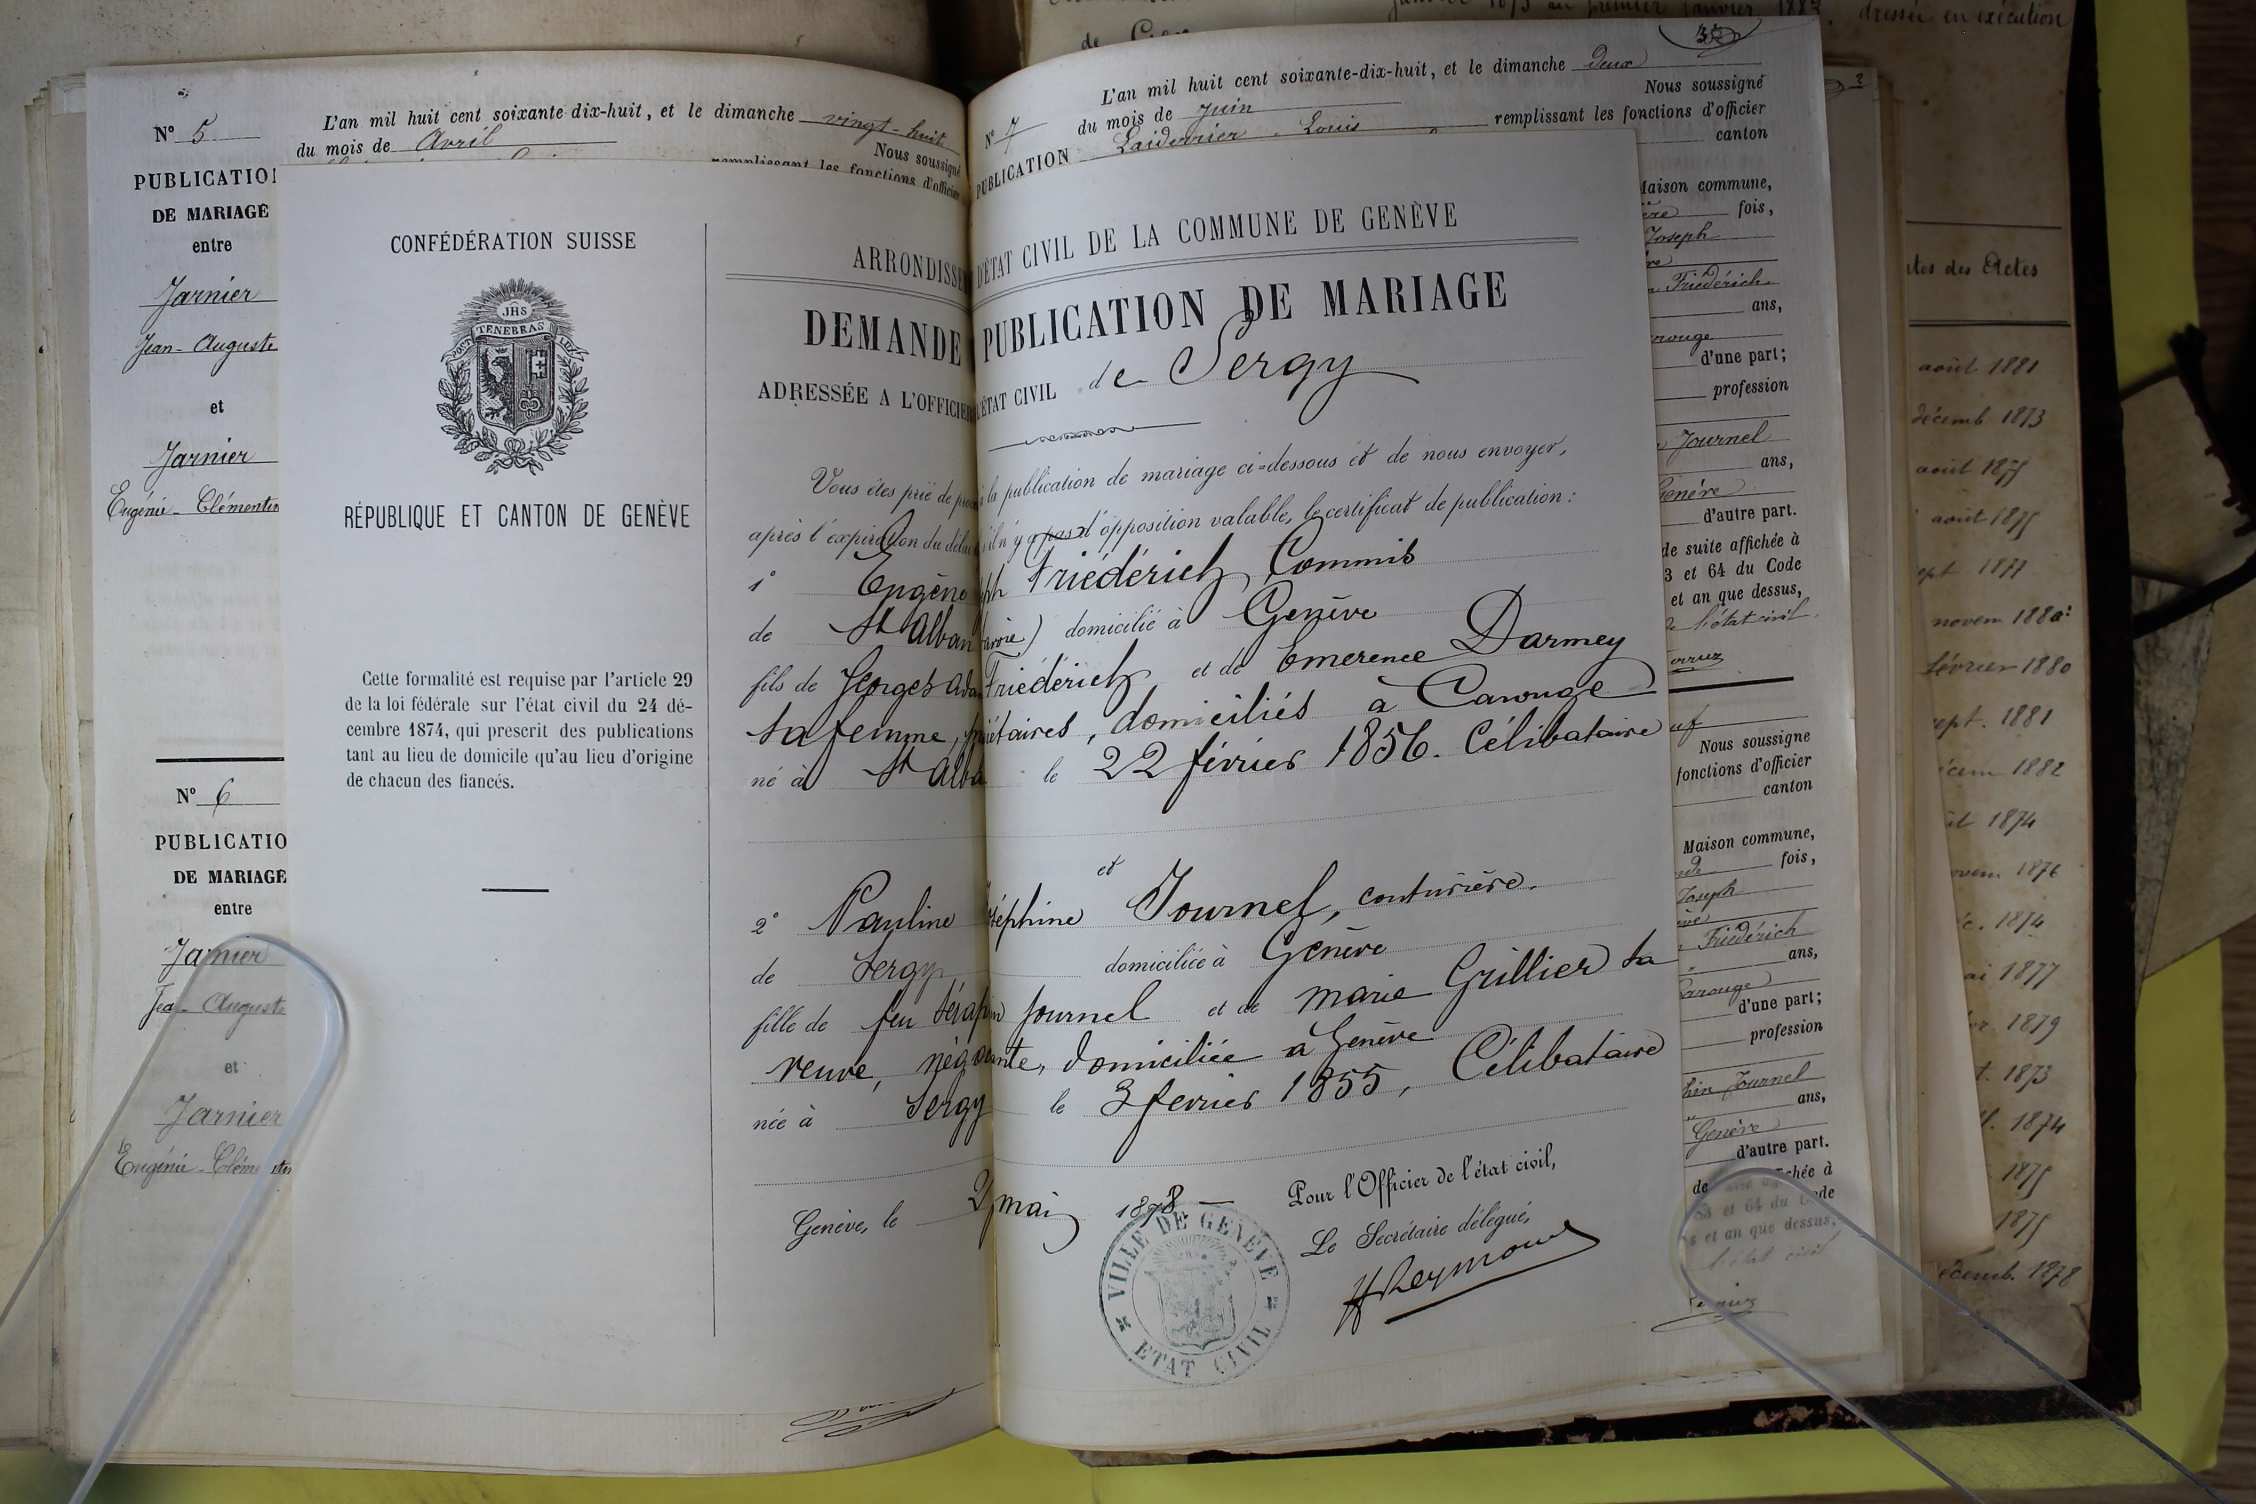 janvier 1873 au premier janvier 1883, dressée en exécution
de
N° 5
L'an mil huit cent soixante dix-huit, et le dimanche vingt-huit
du mois de Avril
Nous soussigné
remplissant les fonctions d'officier
PUBLICATION
DE MARIAGE
entre
Jarnier
Jean-Auguste
et
Jarnier
Eugénie-Clémentin
N° 6
PUBLICATIO
DE MARIAGE
entre
Jarnier
Jean Auguste
et
Jarnier
Eugénie-Clémentin
CONFÉDÉRATION SUISSE
JHS
POST TENEBRAS LUX
RÉPUBLIQUE ET CANTON DE GENÈVE
Cette formalité est requise par l'article 29
de la loi fédérale sur l'état civil du 24 dé-
cembre 1874, qui prescrit des publications
tant au lieu de domicile qu'au lieu d'origine
de chacun des fiancés.
N° 7
L'an mil huit cent soixante-dix-huit, et le dimanche deux
du mois de Juin
Nous soussigné
PUBLICATION
Laiderrier Louis
remplissant les fonctions d'officier
canton
ARRONDISSE D'ÉTAT CIVIL DE LA COMMUNE DE GENÈVE
DEMANDE PUBLICATION DE MARIAGE
ADRESSÉE A L'OFFICIER L'ÉTAT CIVIL de Sergy
Vous êtes prié de procé à la publication de mariage ci-dessous et de nous envoyer,
après l'expiration du délai s'il n'y a pas d'opposition valable, le certificat de publication:
1° Eugène ph Friédérich, Commis
de St Alban avoie) domicilié à Genève
fils de Georges Ada Friédérich et de Emerence Darmey
sa femme, priétaires, domiciliés à Carouge
né à St Alba le 22 février 1856. Célibataire
et
2° Pauline Joséphine Journel, couturière.
de Sergy domiciliée à Genève
fille de feu Séraphin Journel et de Marie Grillier sa
veuve, négociante, domiciliée à Genève
née à Sergy le 3 février 1855, Célibataire
Genève, le 2 mai 1878
Pour l'Officier de l'état civil,
Le Secrétaire délégué,
HReymond
VILLE DE GENÈVE
ETAT CIVIL
Maison commune,
fois,
Joseph
Friédérich
ans,
rrouge
d'une part;
profession
Journel
ans,
Genève
d'autre part.
de suite affichée à
3 et 64 du Code
et an que dessus,
l'état civil
Nous soussigné
fonctions d'officier
canton
Maison commune,
fois,
Joseph
Friédérich
ans,
Carrouge
d'une part;
profession
hin Journel
ans,
Genève
d'autre part.
de chée à
63 et 64 du Code
s et an que dessus,
l'état civil
tes des Actes
août 1881
décemb 1873
août 1875
août 1875
sept 1877
novem 1880
février 1880
sept. 1881
écem 1882
1874
ovem 1876
c. 1874
ai 1877
1879
t. 1873
1874
1875
1875
écemb. 1878